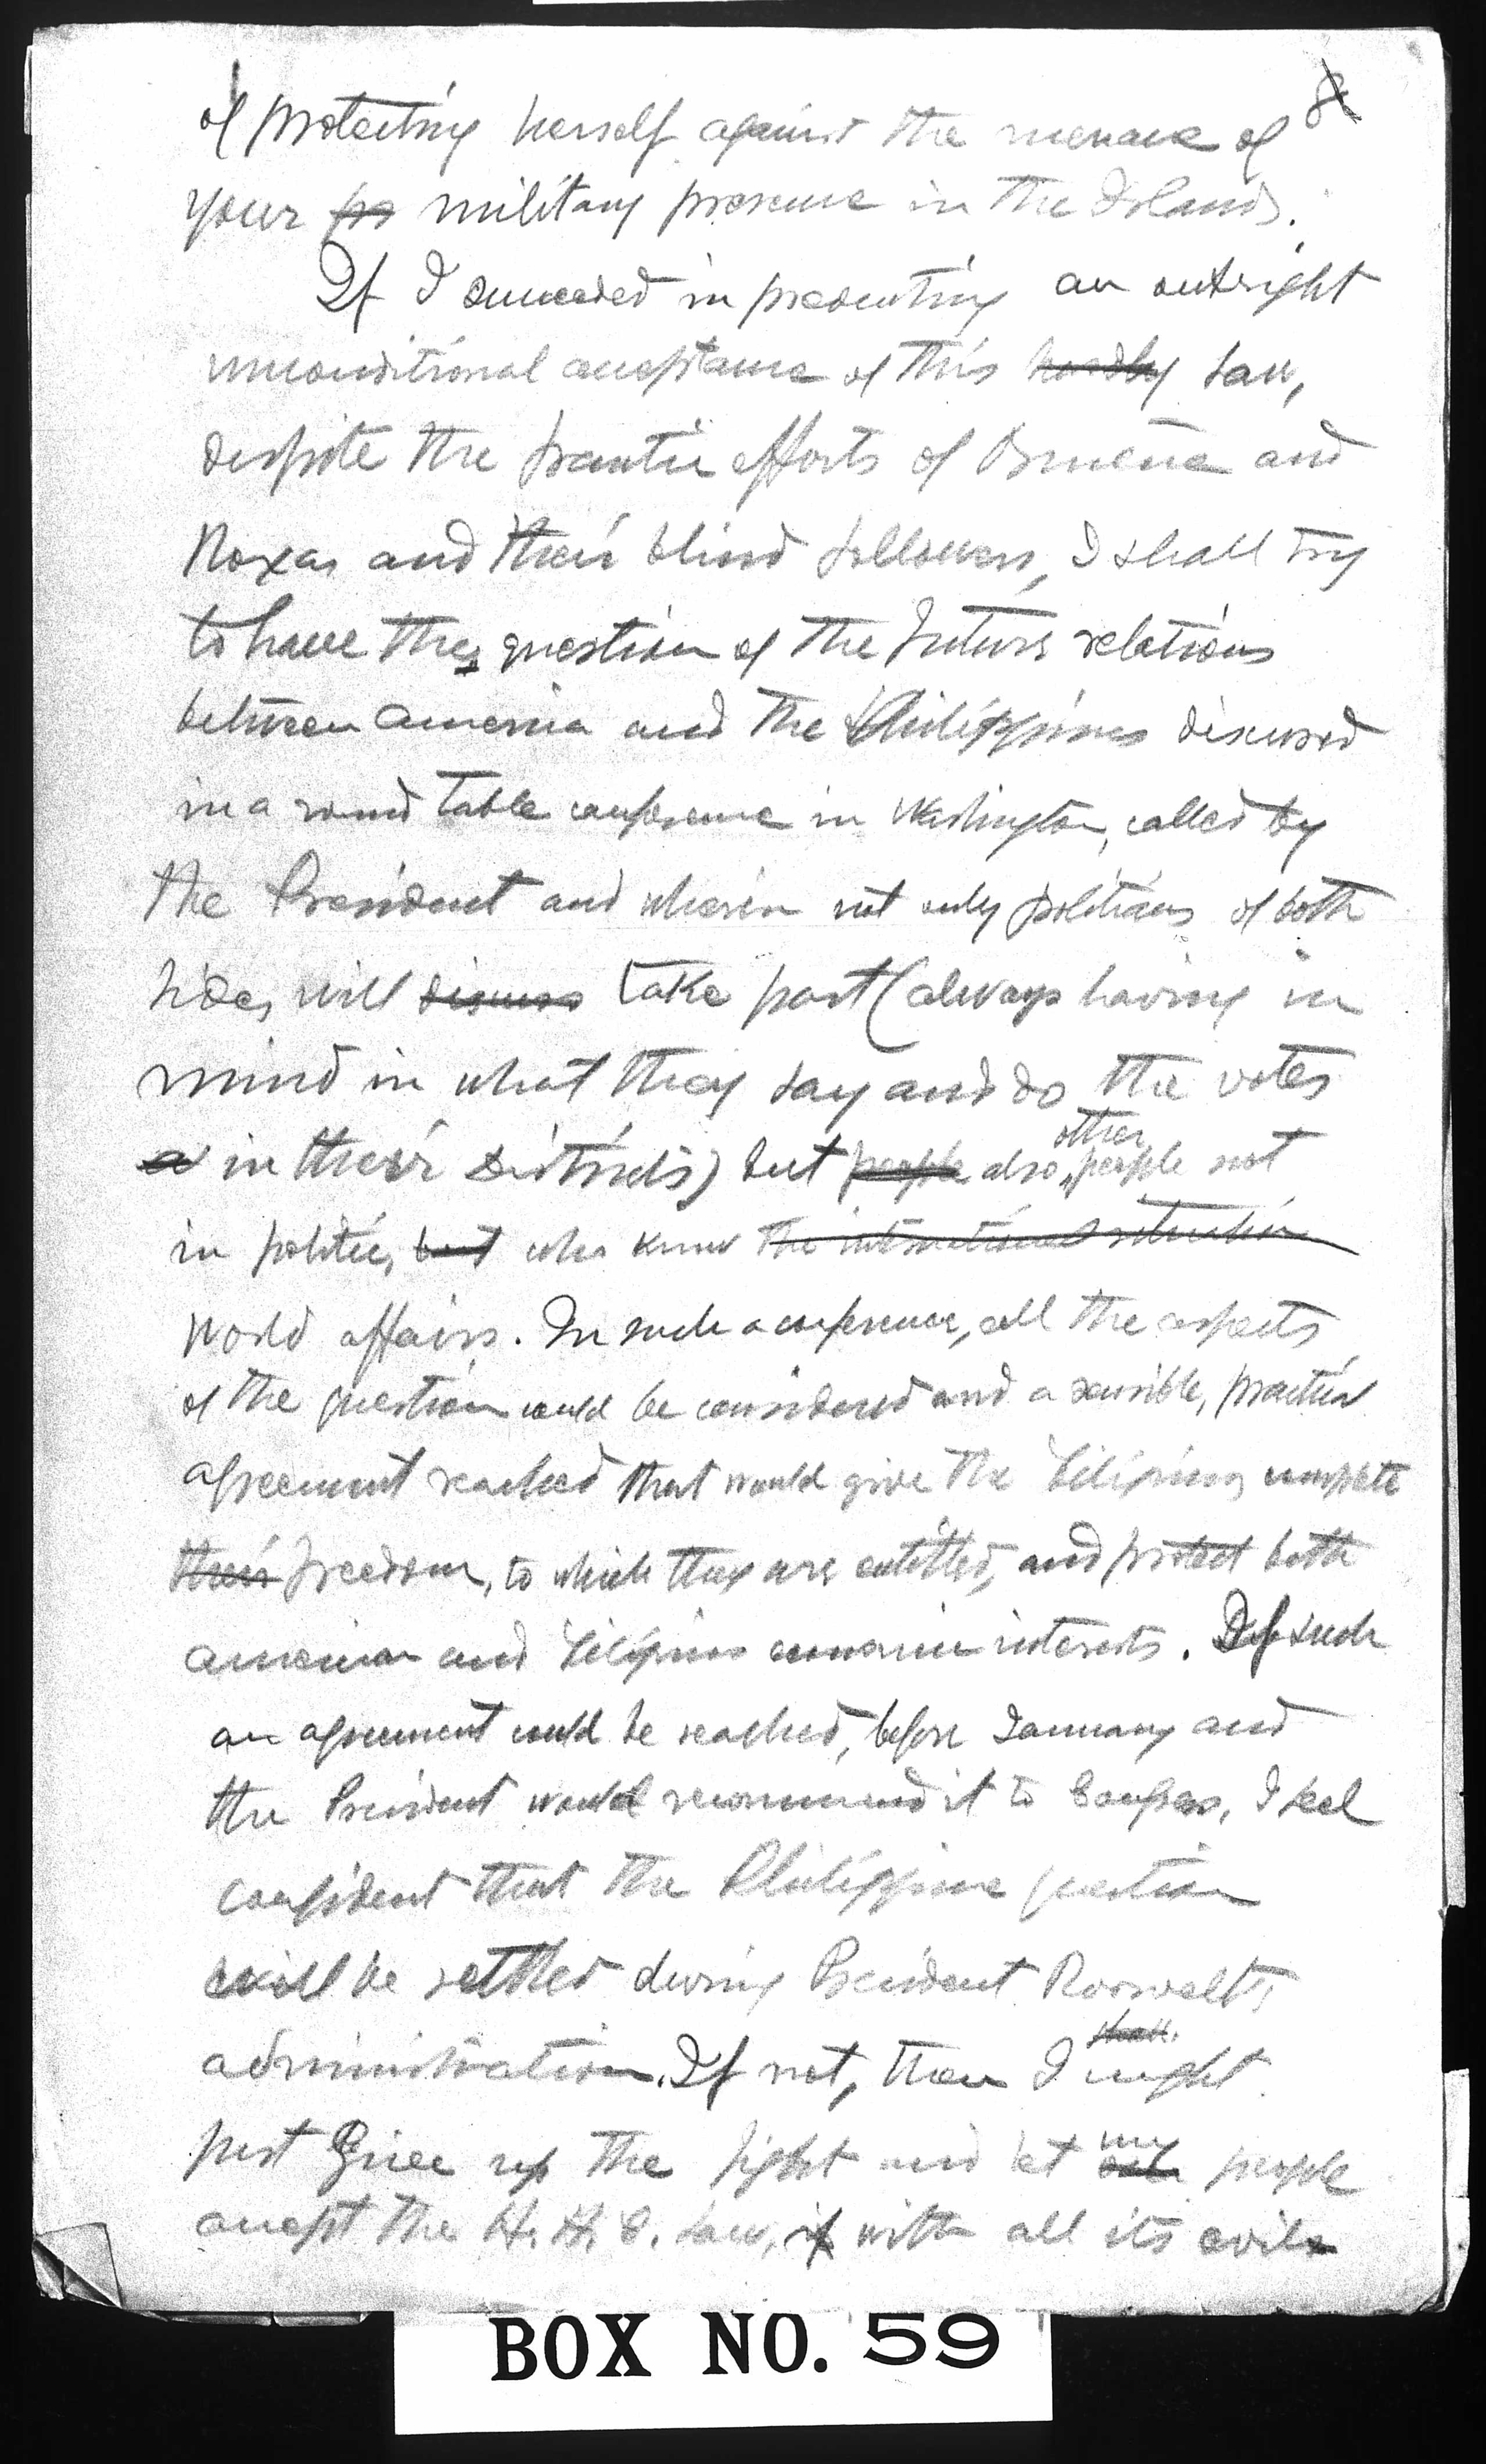 8
of protecting herself against the menace of
your military presence in the Islands.
If I succeeded in preventing an outright
unconditional acceptance of this law,
despite the frantic efforts of Osmeña and
Roxas and their blind followers, I shall try
to have the question of the future relations
between America and the Philippines discussed
in a round table conference in Washington, called by
the President and wherein not only politicians of both
sides will discuss take part (always having in
mind in what they say and do the votes
in their districts) but people also other people not
in politics, but who know the international situation
world affairs. In such a conference, all the aspects
of the question could be considered and a sensible, practical
agreement reached that would give the Filipinos complete
their freedom, to which they are entitled, and protect both
American and Filipino economic interests. If such
an agreement could be reached, before January and
the President would recommend it to Congress, I feel
confident that the Philippine question
will be settled during President Roosevelt's
administration. If not, then I might
just give up the fight and let my people
accept the H. H. C. Law, if with all its evils
BOX NO. 59